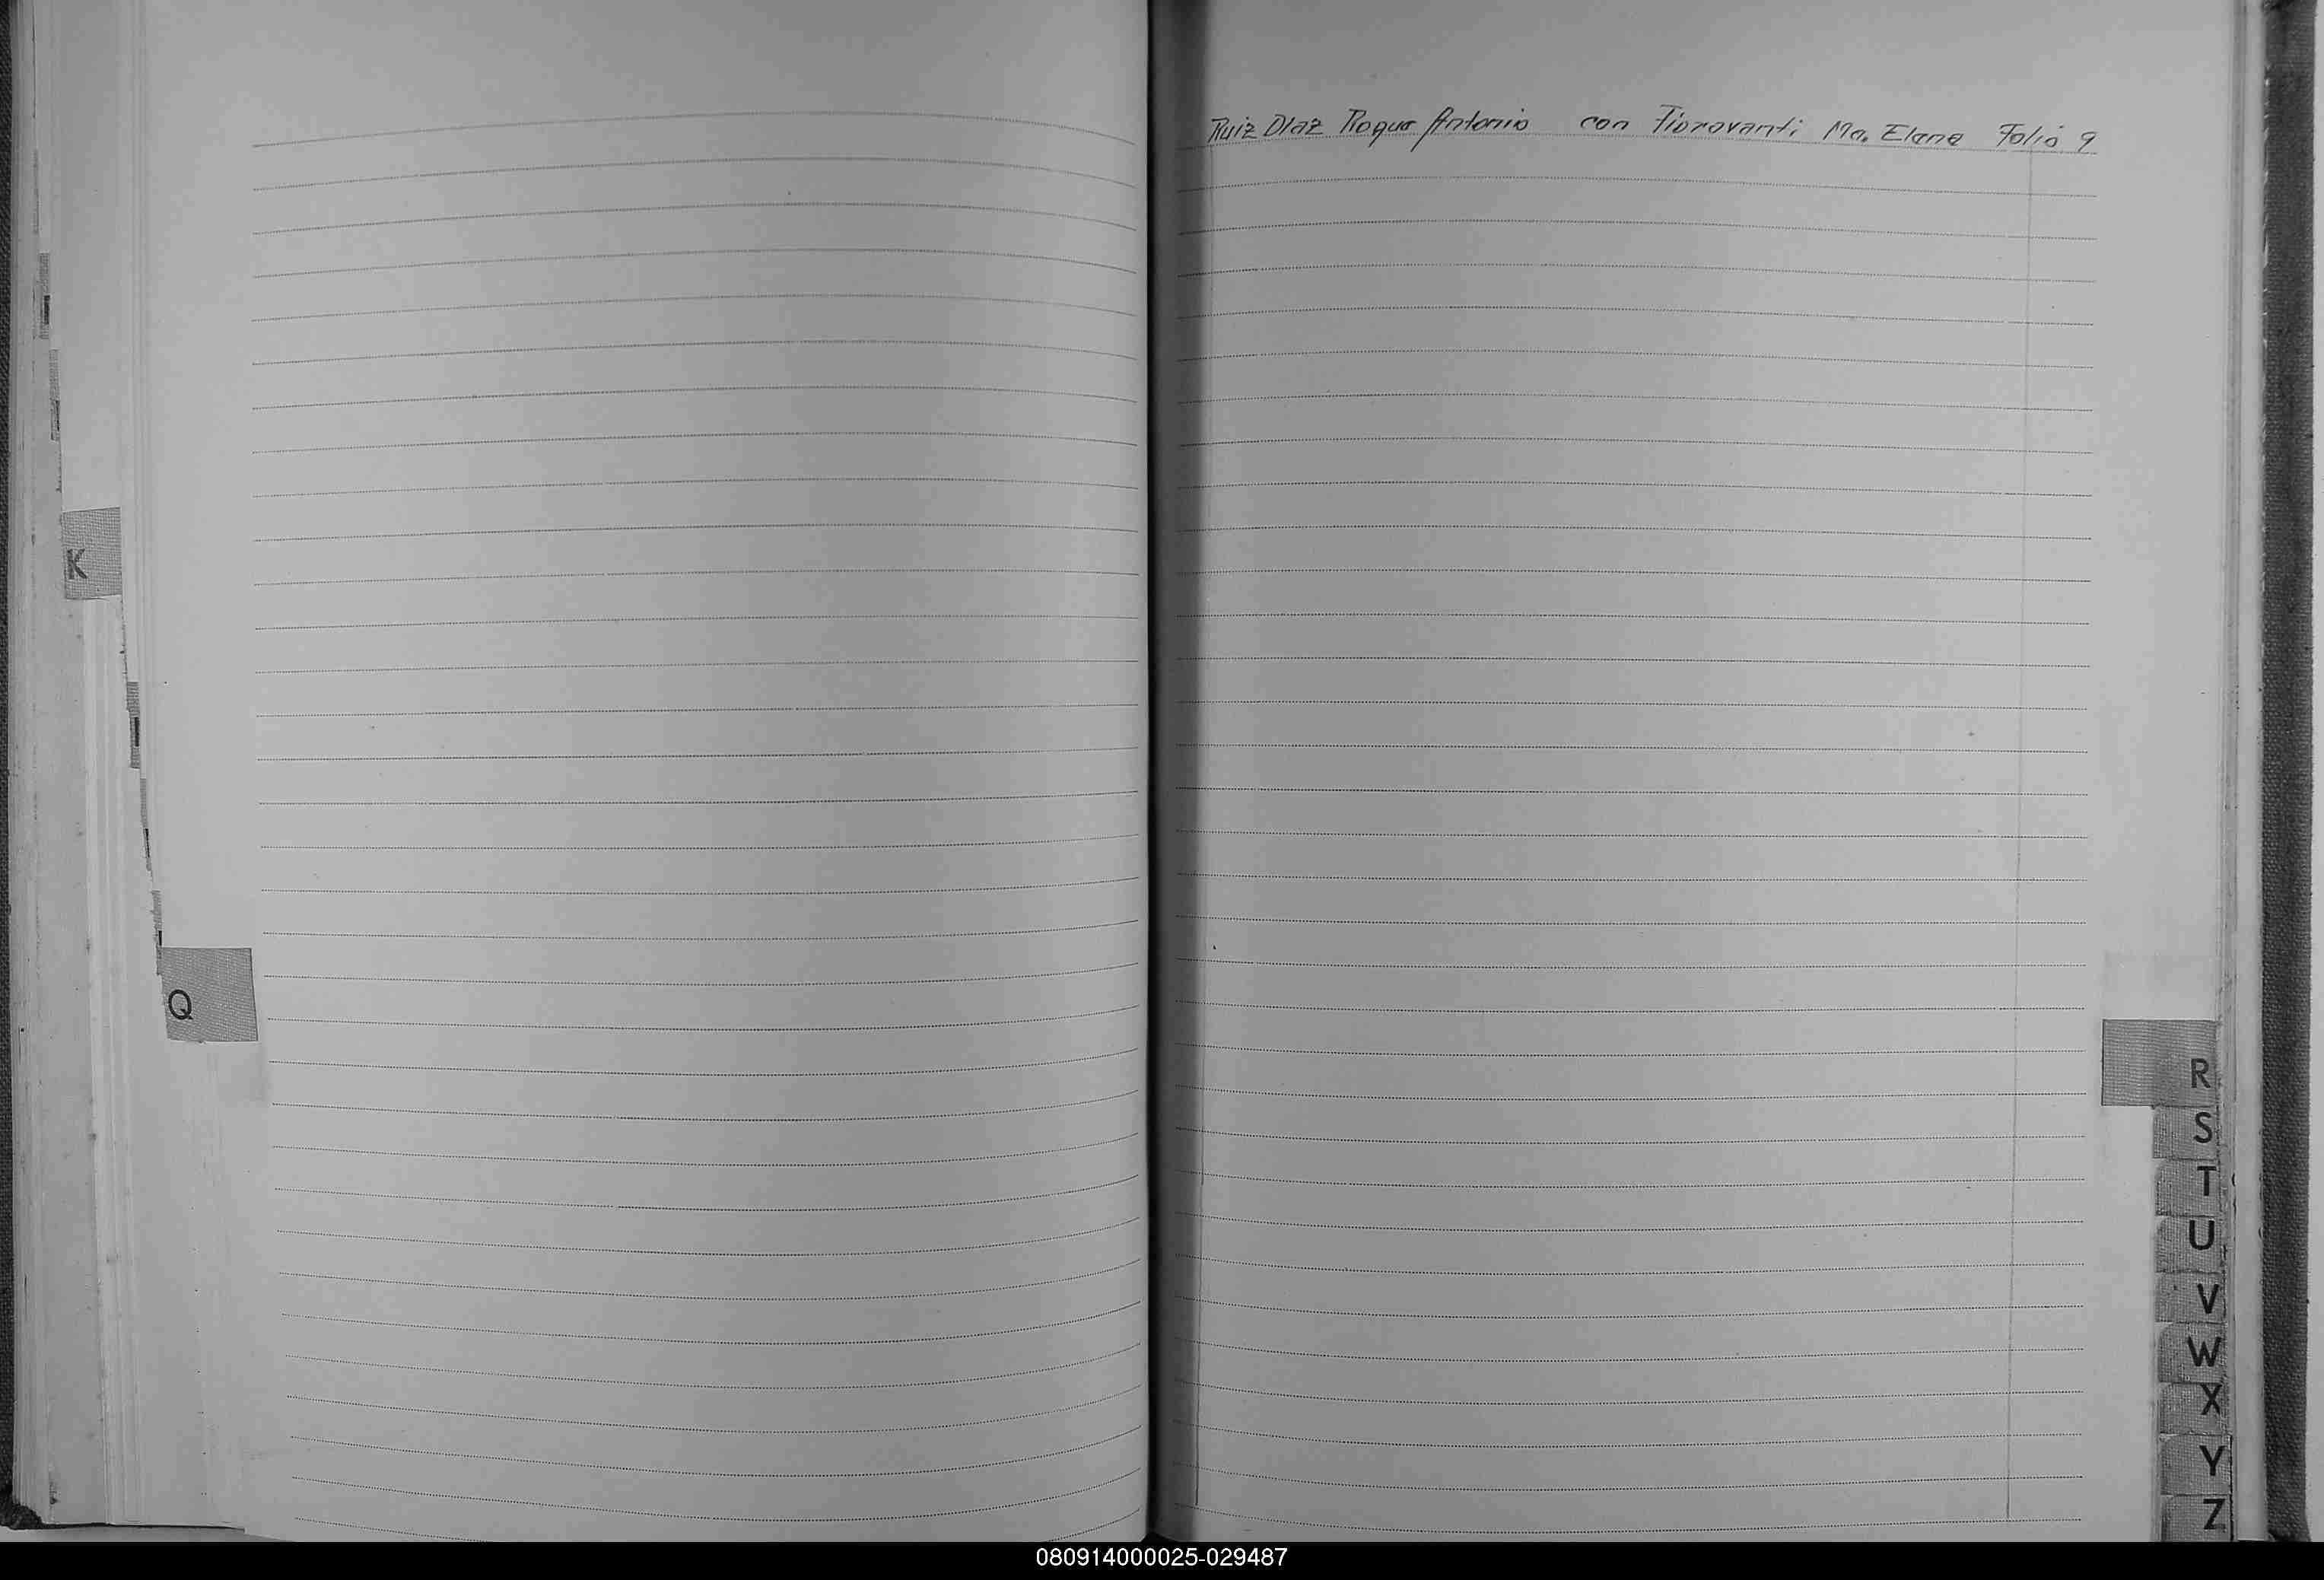 Ruiz Diaz Roque Antonio con Fioravanti Ma. Elena Folio 9
K
Q
R
S
T
U
V
W
X
Y
Z
080914000025-029487